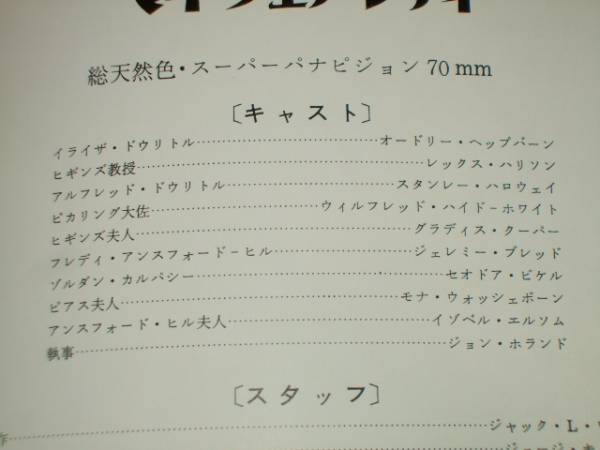 マイ・フェア・レディ
総天然色・スーパーパナビジョン70mm
〔キャスト〕
イライザ・ドウリトル……オードリー・ヘップバーン
ヒギンズ教授……レックス・ハリソン
アルフレッド・ドウリトル……スタンレー・ハロウェイ
ピカリング大佐……ウィルフレッド・ハイド-ホワイト
ヒギンズ夫人……グラディス・クーパー
フレディ・アンスフォード-ヒル……ジェレミー・ブレッド
ゾルダン・カルパシー……セオドア・ビケル
ピアス夫人……モナ・ウォッシェボーン
アンスフォード・ヒル夫人……イゾベル・エルソム
執事……ジョン・ホランド
〔スタッフ〕
作……ジャック・L・